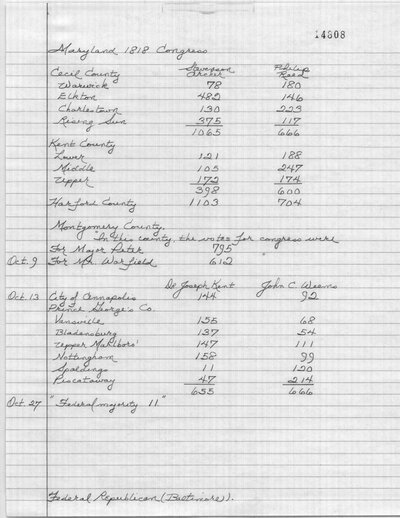 14808
Maryland 1818 Congress
Stevenson Archer Philip Reed
Cecil County
Warwick 78 180
Elkton 482 146
Charlestown 130 223
Rising Sun 375 117
1065 666
Kent County
Lower 121 188
Middle 105 247
Upper 172 174
398 600
Harford County 1103 704
Montgomery County.
"In this county, the votes for congress were
For Major Peter 795
Oct. 9 For Mr. Warfield 612 "
Dr Joseph Kent John C Weems
Oct. 13 City of Annapolis 144 92
Prince George's Co.
Vansville 155 68
Bladensburg 137 54
Upper Marlboro' 147 111
Nottingham 158 99
Spaldings 11 120
Piscataway 47 214
655 666
Oct. 27 "Federal majority 11"
Federal Republican (Baltimore).